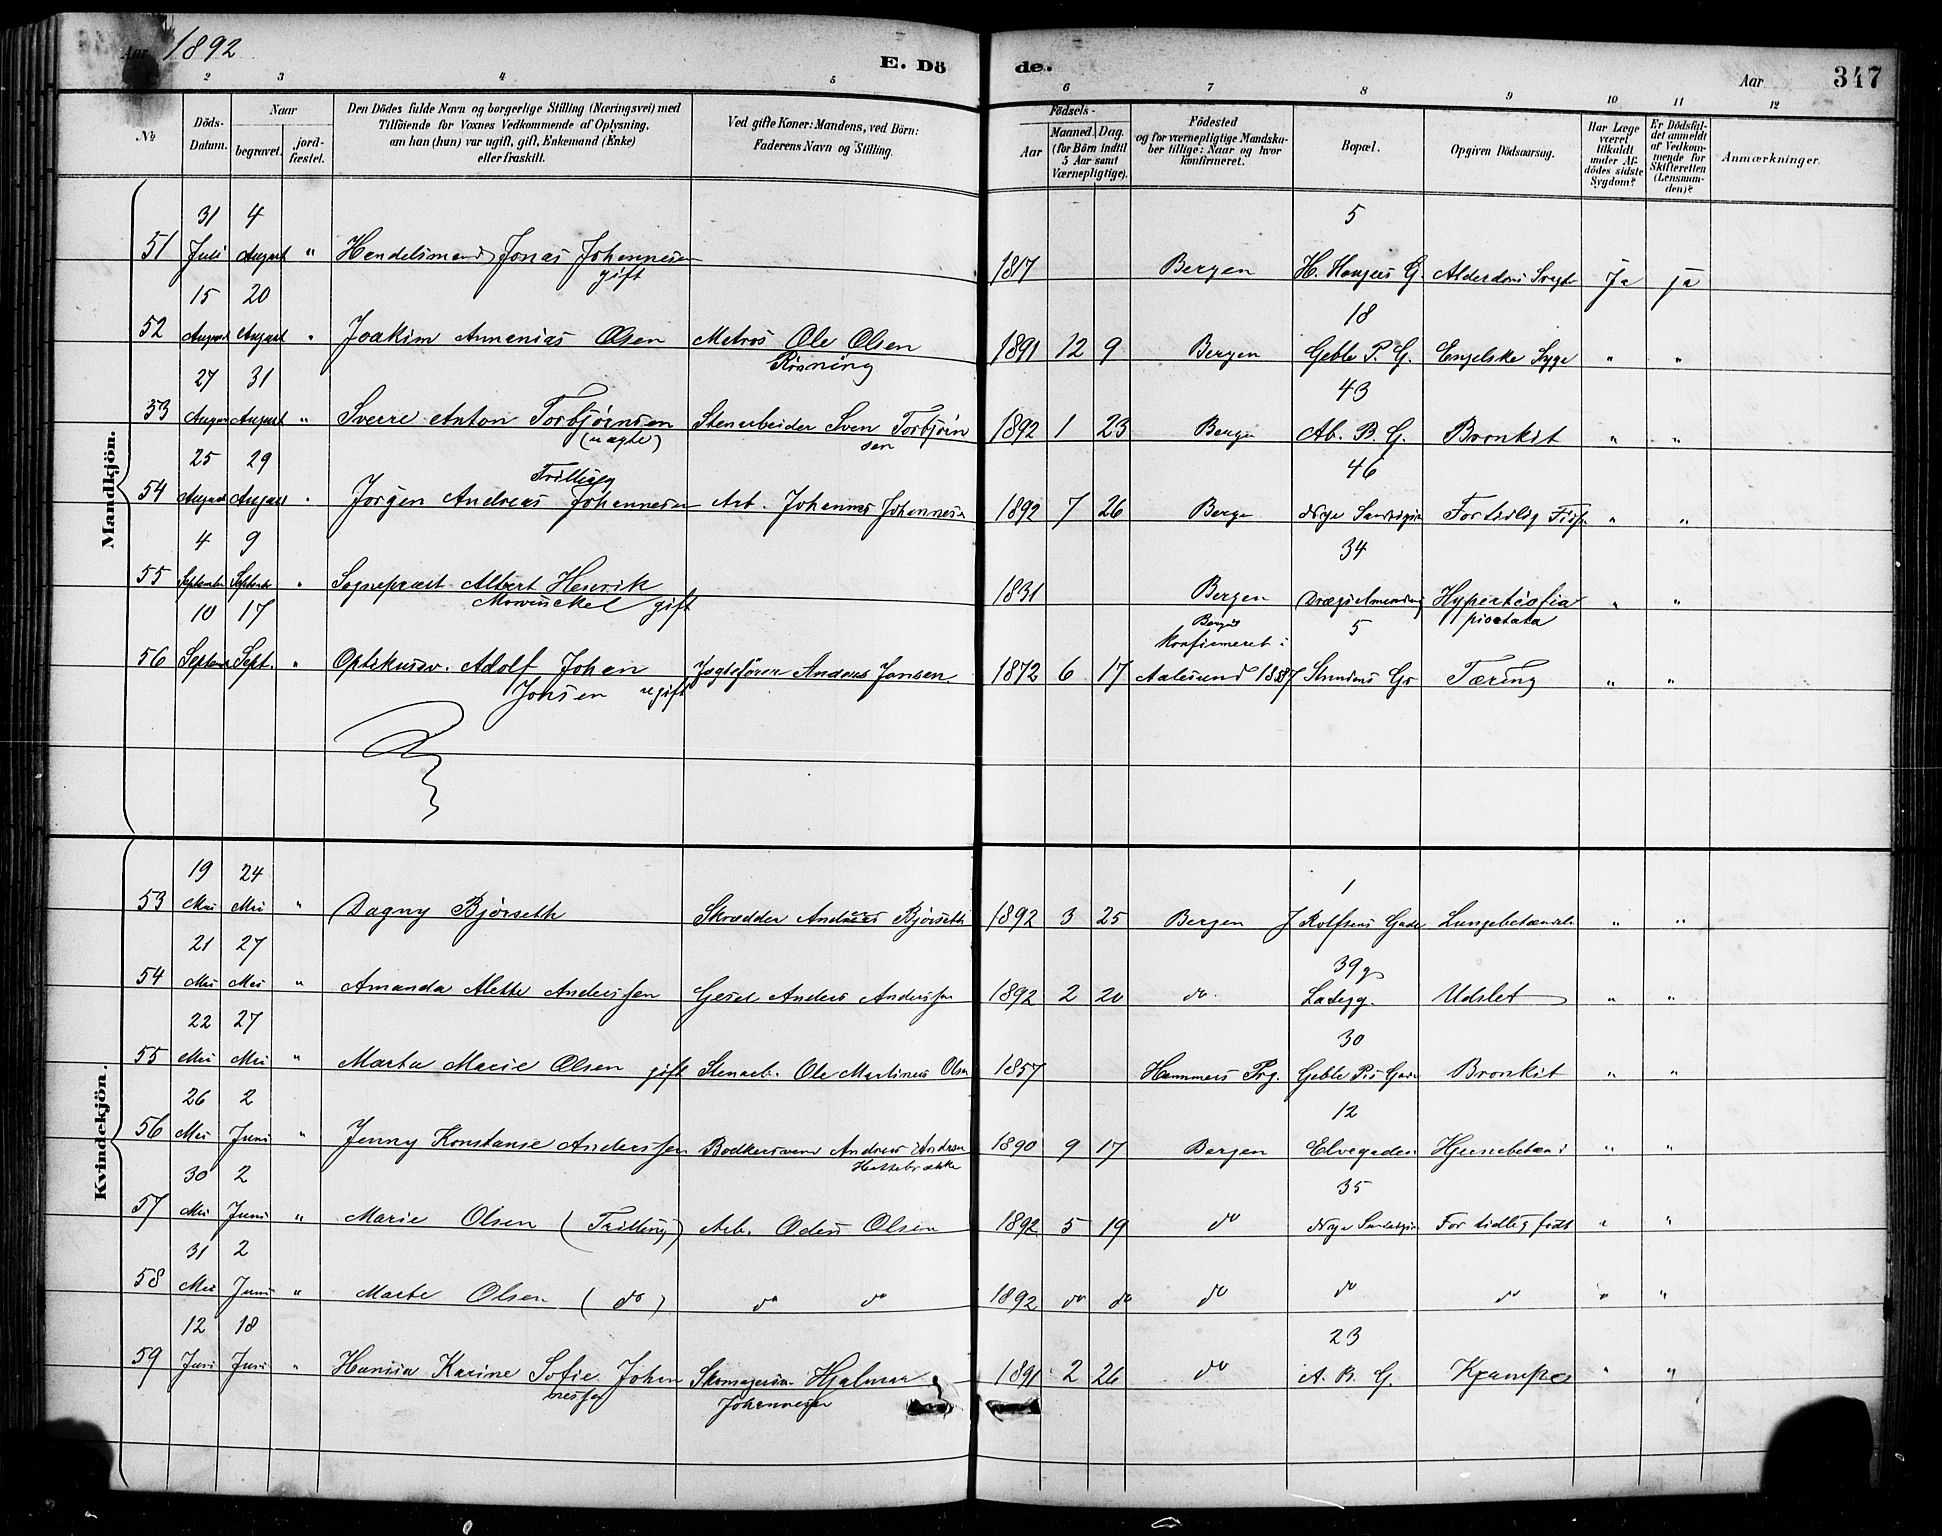 Aar 1892
E. Dö de.
Aar
347
2 3 4 5 6 7 8 9 10 11 12
No
Döds-Datum.
Naar
begravet.
jord-fæstet.
Den Dödes fulde Navn og borgerlige Stilling (Næringsvei) med
Tilföiende for Voxnes Vedkommende af Oplysning,
om han (hun) var ugift, gift, Enkemand (Enke)
eller fraskilt.
Ved gifte Koner: Mandens, ved Börn:
Faderens Navn og Stilling.
Födsels-
Aar
Maaned. Dag.
(for Börn indtil
5 Aar samt
Værnepligtige).
Födested
og for værnepligtige Mandska-
ber tillige: Naar og hvor
konfirmeret.
Bopæl.
Opgiven Dödsaarsag.
Har Læge
været
tilkaldt
under Af-
dödes sidste
Sygdom?
Er Dödsfal-
det anmeldt
af Vedkom-
mende for
Skifteretten
(Lensman-
den)?
Anmærkninger.
Mandkjön.
31 4 5
51 Juli August " Jonas Johannesen 1817 Bergen H. Hauges G. Ja ja
gift
15 20 18
52 August August " Joakim Olsen Matros Ole Olsen 1891 12 9 Bergen Geble P. G. Engelske Syge " "
27 31 43
53 August August " Sverre Anton Torbjörnsen Stenarbeider Sven Torbjörn 1892 1 23 Bergen Ab. B. G. Bronkit " "
(uægte) sen
25 29 46
Trilling
54 August August " Jørgen Andreas Johannesen Arb. Johannes Johannesen 1892 7 26 Bergen Nye " "
4 9 34
55 September Septembr " Sogneprest Albert Henrik 1831 Bergen Dræg "  "
Mowinckel gift
10 17 5
konfirmeret i
56 Septembr Sept. " Adolf Johan Jagtefører Anders Jansen 1872 6 17 Aalesund 1887 Tæring " "
ugift
Kvindekjön.
19 24 1
53 Mai Mai " Dagny Bjørseth Skrædder Bjørseth 1892 3 25 Bergen J Rolfsens Gade " "
21 27 39
54 Mai Mai " Amanda Alette Anderssen Anders Anderssen 1892 2 20 do. Udslet " "
22 27 30
55 Mai Mai " Marta Marie Olsen gift Stenarb. Ole Martinus Olsen 1857 Hammers Prg. Bronkit " "
26 2 12
56 Mai Juni " Jenny Konstanse Anderssen 1890 9 17 Bergen " "
30 2 35
57 Mai Juni " Marie Olsen (Trilling) Arb. Olsen 1892 5 19 do Nye For tidlig født " "
31 2
58 Mai Juni " Marta Olsen (do) do do 1892 do do do do do " "
12 18 23
59 Juni Juni " Karine Sofie Johan Hjalmar 1891 2 26 do A. B. G. Krampe " "
nessen Johannessen